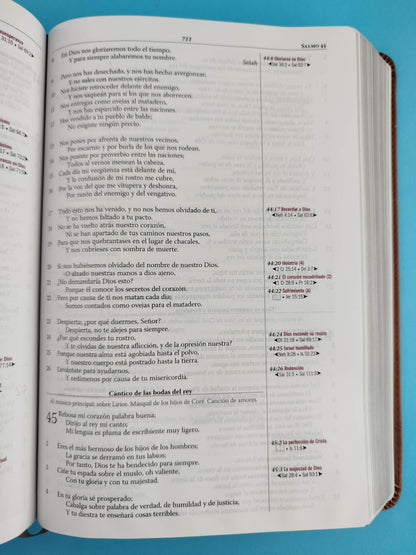 711
SALMO 45
8 En Dios nos gloriaremos todo el tiempo,
Y para siempre alabaremos tu nombre. Selah
44:8 Gloriarse en Dios
9 Pero nos has desechado, y nos has hecho avergonzar;
Y no sales con nuestros ejércitos.
10 Nos hiciste retroceder delante del enemigo,
Y nos saquean para sí los que nos aborrecen.
11 Nos entregas como ovejas al matadero,
Y nos has esparcido entre las naciones.
12 Has vendido a tu pueblo de balde;
No exigiste ningún precio.
13 Nos pones por afrenta de nuestros vecinos,
Por escarnio y por burla de los que nos rodean.
14 Nos pusiste por proverbio entre las naciones;
Todos al vernos menean la cabeza.
15 Cada día mi vergüenza está delante de mí,
Y la confusión de mi rostro me cubre,
16 Por la voz del que me vitupera y deshonra,
Por razón del enemigo y del vengativo.
17 Todo esto nos ha venido, y no nos hemos olvidado de ti,
Y no hemos faltado a tu pacto.
44:17 Recordar a Dios
18 No se ha vuelto atrás nuestro corazón,
Ni se han apartado de tus caminos nuestros pasos,
19 Para que nos quebrantases en el lugar de chacales,
Y nos cubrieses con sombra de muerte.
20 Si nos hubiésemos olvidado del nombre de nuestro Dios,
O alzado nuestras manos a dios ajeno,
44:20 Idolatría (4)
21 ¿No demandaría Dios esto?
Porque él conoce los secretos del corazón.
44:21 El corazón escudriñado (2)
22 Pero por causa de ti nos matan cada día;
Somos contados como ovejas para el matadero.
44:22 Sufrimiento (4)
23 Despierta; ¿por qué duermes, Señor?
Despierta, no te alejes para siempre.
24 ¿Por qué escondes tu rostro,
Y te olvidas de nuestra aflicción, y de la opresión nuestra?
44:24 Dios esconde su rostro
25 Porque nuestra alma está agobiada hasta el polvo,
Y nuestro cuerpo está postrado hasta la tierra.
44:25 Israel humillado
26 Levántate para ayudarnos,
Y redímenos por causa de tu misericordia.
44:26 Redención
Cántico de las bodas del rey
Al músico principal; sobre Lirios. Masquil de los hijos de Coré. Canción de amores.
45 Rebosa mi corazón palabra buena;
Dirijo al rey mi canto;
Mi lengua es pluma de escribiente muy ligero.
2 Eres el más hermoso de los hijos de los hombres;
La gracia se derramó en tus labios;
Por tanto, Dios te ha bendecido para siempre.
45:2 La perfección de Cristo
3 Ciñe tu espada sobre el muslo, oh valiente,
Con tu gloria y con tu majestad.
45:3 La majestad de Dios
4 En tu gloria sé prosperado;
Cabalga sobre palabra de verdad, de humildad y de justicia,
Y tu diestra te enseñará cosas terribles.